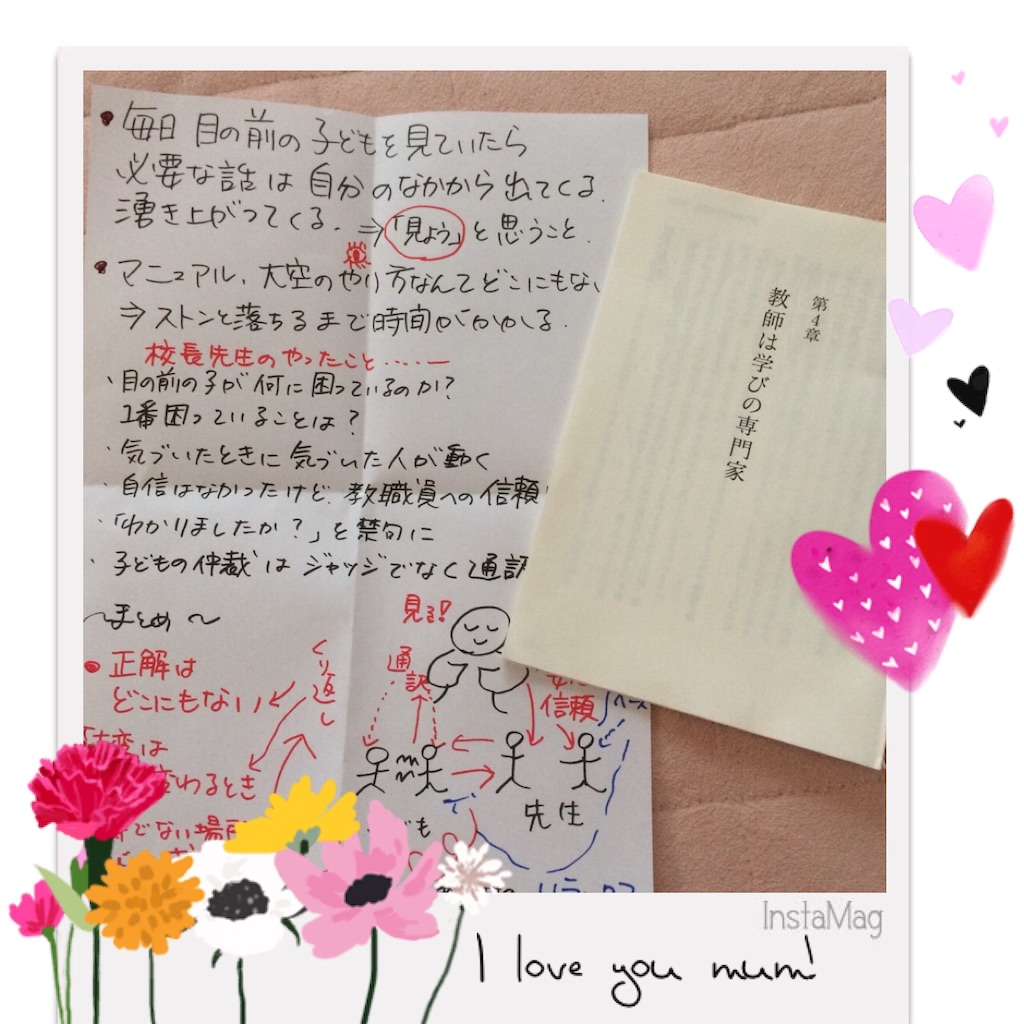 • 毎日 目の前の子どもを見ていたら
必要な話は自分のなかから出てくる.
湧き上がってくる. ⇒「見よう」と思うこと.
• マニュアル、大空のやり方なんてどこにもない
⇒ ストンと落ちるまで時間がかかる.
校長先生のやったこと……
・目の前の子が何に困っているのか?
1番困っていることは?
・気づいたときに気づいた人が動く
・自信はなかったけど、教職員への信頼
・「わかりましたか?」を禁句に
・子どもの仲裁はジャッジでなく通訳
〜まとめ〜
• 正解は
どこにもない
は
変わるとき
でない場所
くり返し
見る!
通訳
信頼
先生
ども
第4章
教師は学びの専門家
InstaMag
I love you mum!